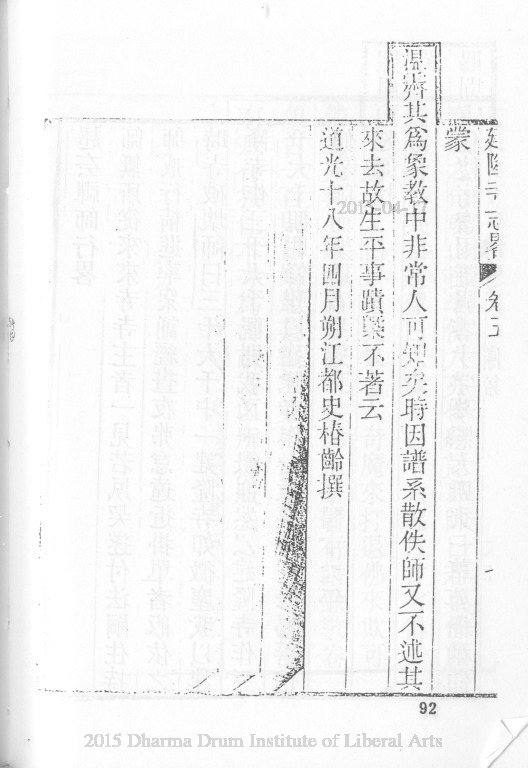 建隆寺志畧 卷
蒙
齊其為象教中非常人可知矣時因譜系散佚師又不述其
來去故生平事蹟槩不著云
道光十八年四月朔江都史椿齡撰
92
2015 Dharma Drum Institute of Liberal Arts